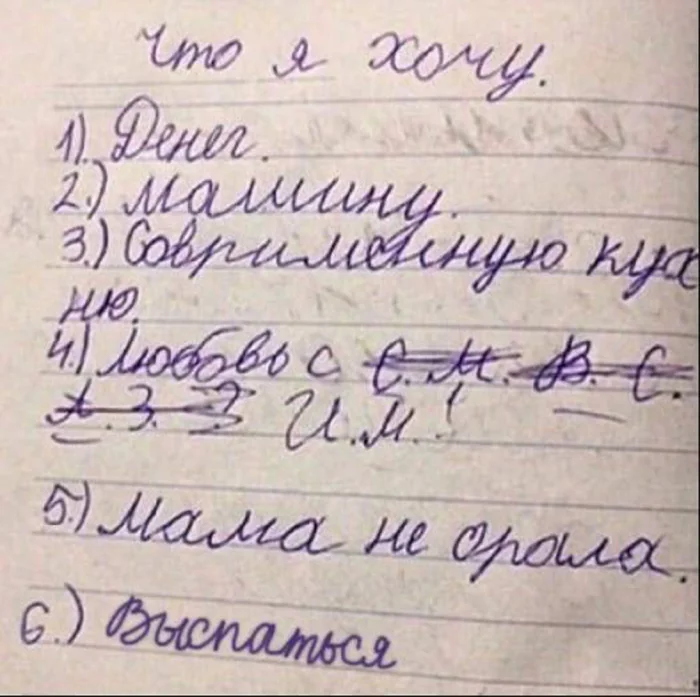 Что я хочу.
1). Денег.
2.) Машину.
3.) Соврименную кух
ню.
4.) Любовь с С. М. В. С.
А. З. Э И.М.!
5.) Мама не орала.
6.) Выспаться